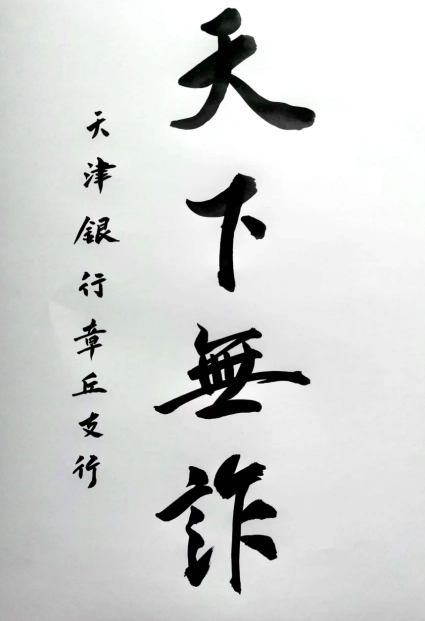 天下無詐
天津銀行章丘支行